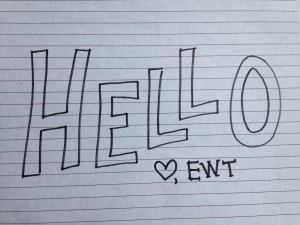 HELLO
♡, EWT